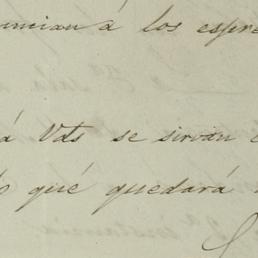 uncian á los espre
á Vds se sirvan
que quedará